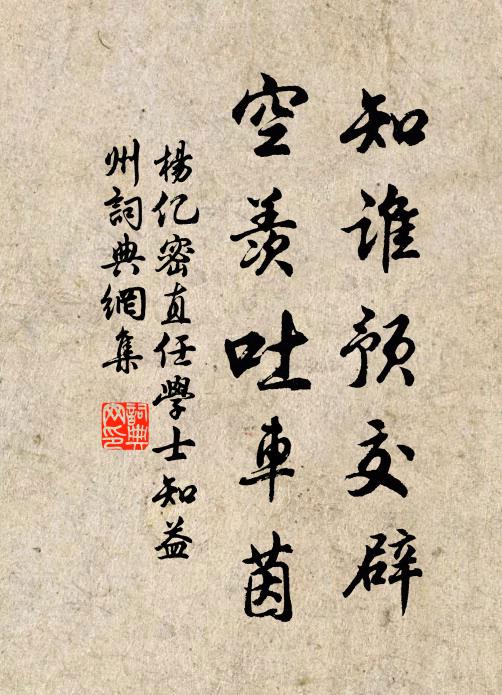 知誰預交辟
空羨吐車茵
楊億密直任學士知益
州詞典網集
詞典
网印